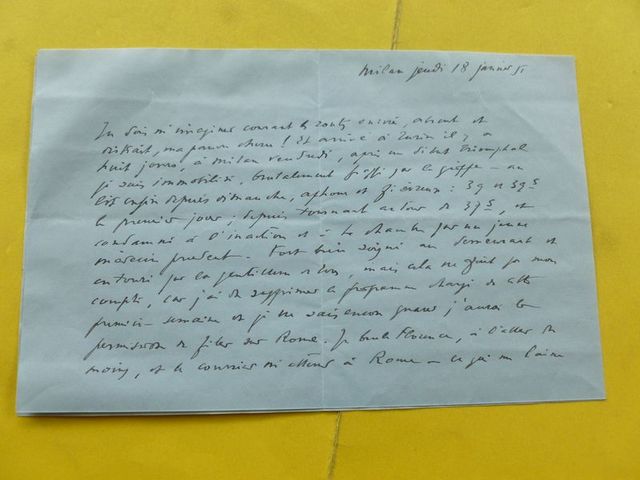 Milan jeudi 18 janvier 51
Tu dois m'imaginer courant les routes enivré, absent et
distrait, ma pauvre chérie ! Et arrivé à Turin il y a
huit jours, à Milan vendredi, après un début triomphal
je suis immobilisé, brutalement par la grippe – au
lit enfin depuis dimanche, aphone et fiévreux : 39 et 39 5
le premier jour ; depuis tournant autour de 37 5, et
condamné à l'inaction et à la chambre par un jeune
médecin prudent. Fort bien soigné au demeurant et
entouré par la gentillesse de tous, mais cela ne fait pas mon
compte, car j'ai dû supprimer le programme chargé de cette
première semaine et je ne sais encore quand j'aurai la
permission de filer sur Rome. Je brûle Florence, à l'aller du
moins, et le courrier m'attend à Rome – ce qui me laisse